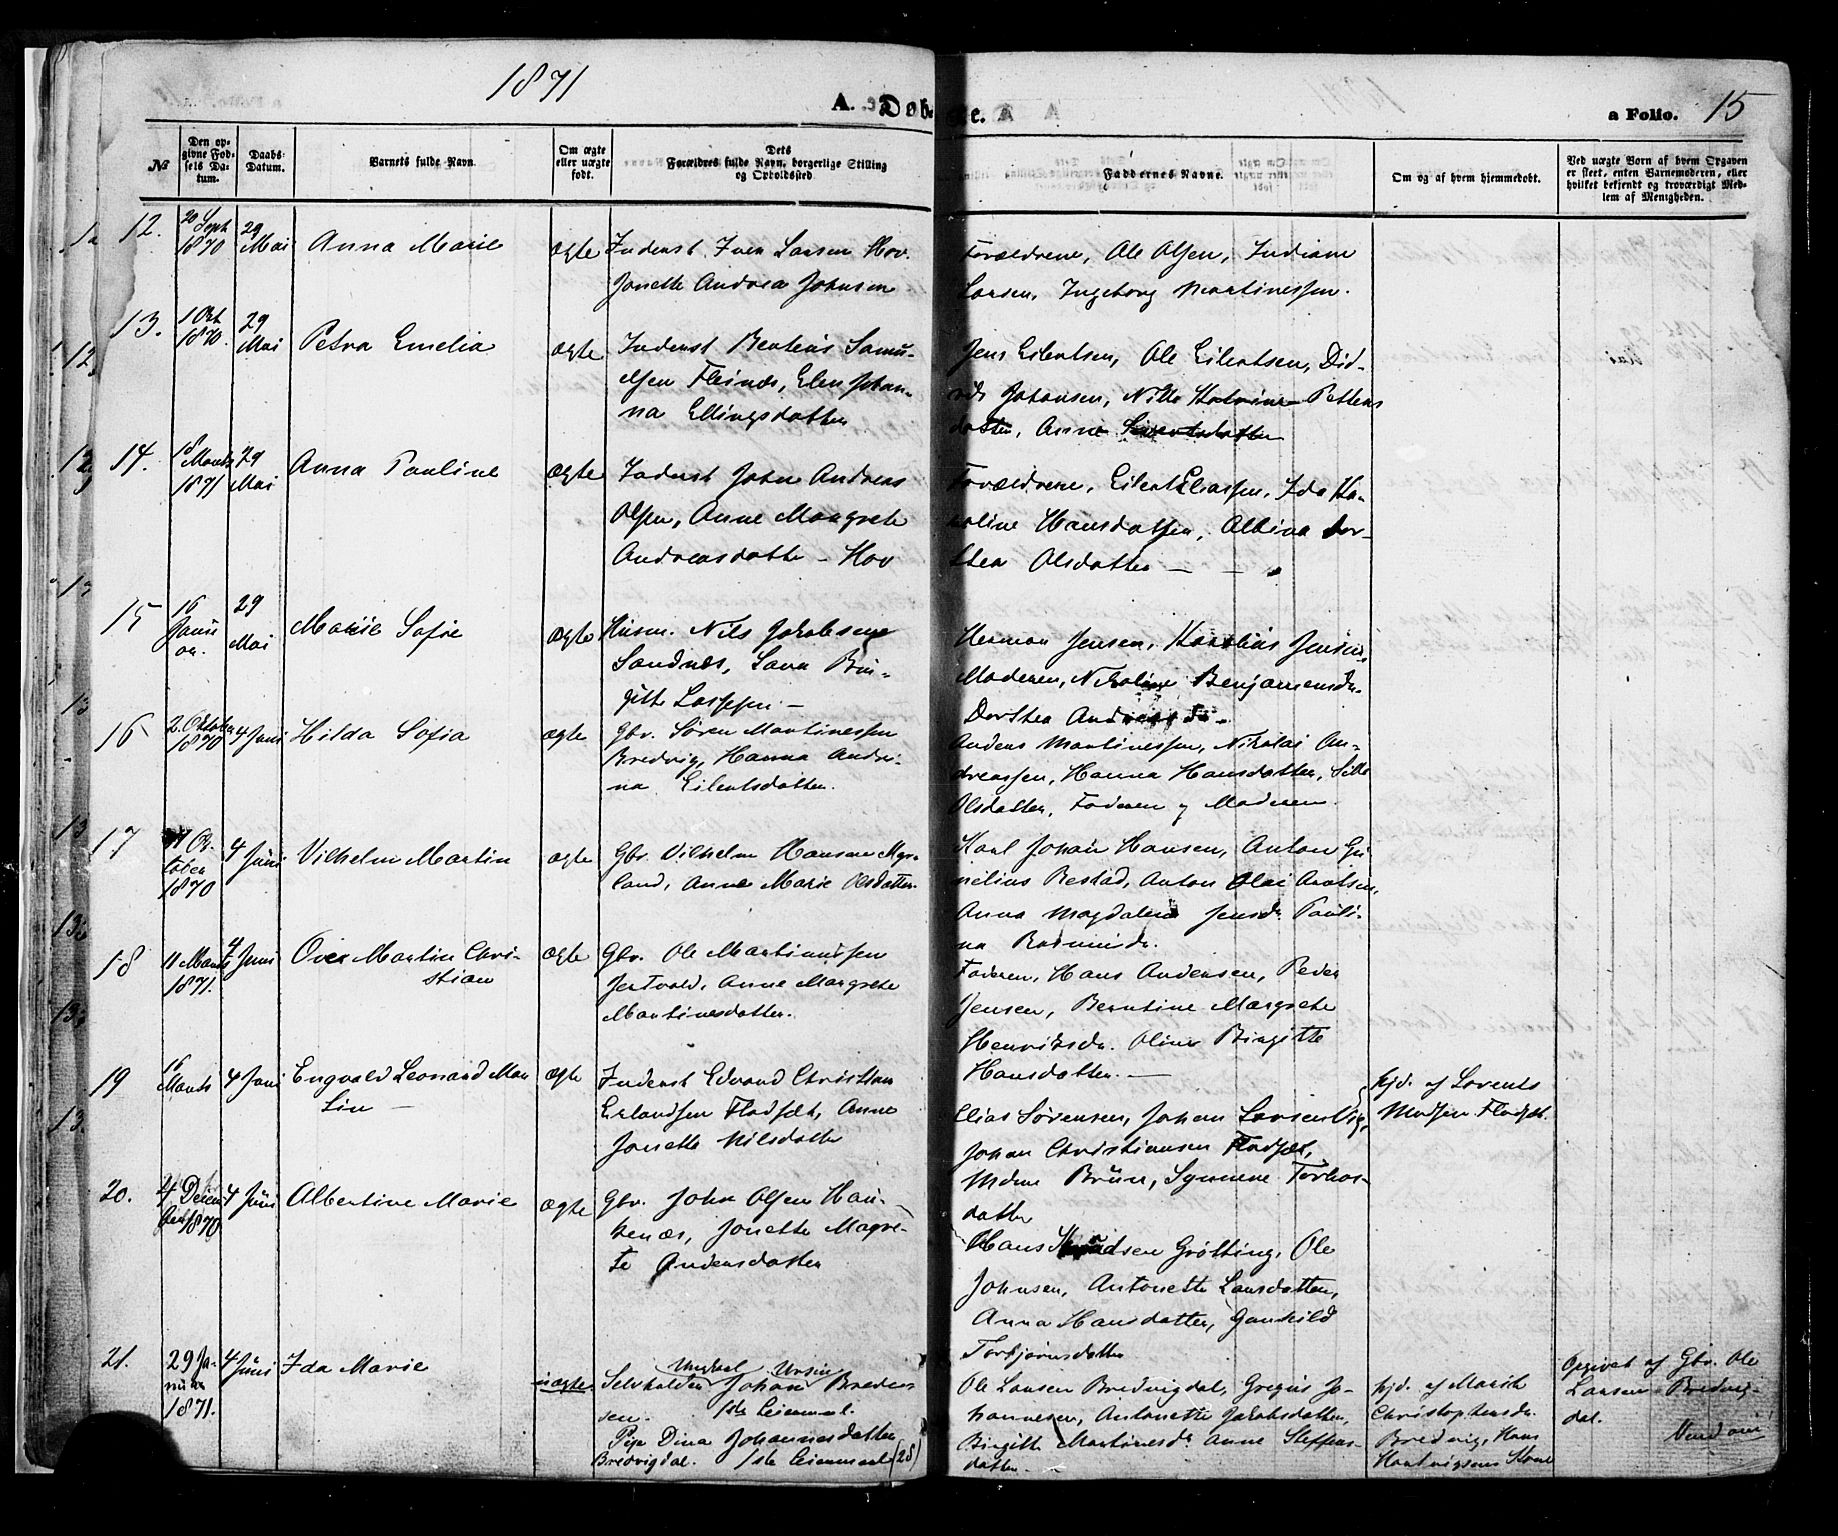 1871
A. Døbte.
a Folio. 15
№
Den opgivne Fødsels Datum.
Daabs-Datum.
Barnets fulde Navn.
Om ægte eller uægte født.
Dets Forældres fulde Navn, borgerlige Stilling og Opholdssted.
Faddernes Navne.
Om og af hvem hjemmedøbt.
Ved uægte Born af hvem Opgaven er skeet, enten Barnemoderen, eller hvilket bekjendt og troværdigt Medlem af Menigheden.
12. 20 Sept 1870 29 Mai Anna Marie ægte
Inderst Iver Larsen Hov.
Jonette Andrea Johnsen
Forældrene, Ole Olsen, Indiane
Larsen, Ingeborg Martinessen.
13. 1 Oct 1870. 29 Mai Petra Emelia ægte
Inderst Benteus Samu-
elsen Fleines, Elen Johan-
na Ellingsdatter
Jens Eilertsen, Ole Eilertsen, Did-
rik Johansen, Nille Katrine Petters
datter, Anne
14. 18 Marts 1871 29 Mai Anna Pauline ægte
Inderst John Andreas
Olsen, Anne Margrete
Andreasdatte - Hov
Forældrene, Eilert Eliassen, Ida Ka-
roline Hansdatter, Albina Dor-
thea Olsdatter —
15 16 Januar. 29 Mai Marie Sofie ægte
Husm. Nils Jakobsen
Sandnæs, Sara Bir-
gitte
Herman Jensen, Karelius Jensen,
Moderen, Nikoline Benjaminsdr.
Dorthea Andreasdr.
16 2. Oktober 1870 4 Juni Hilda Sofia ægte
Gbr. Søren Martinessen
Bredvig, Hanna Andri-
na Eilertsdatter.
Anders Martinessen, Nikolai An-
dreassen, Hanna Hansdatter, Sille
Olsdatter, Faderen og Moderen.
17 11 October 1870 4 Juni Vilhelm Martin ægte
Gbr. Vilhelm Hansen Myr-
land, Anne Marie Olsdatter.
Karl Johan Hansen, Anton Gu-
nelius Restad, Anton Olai Arntsen,
Anna Magdalena Jensdr. Pauli-
na
18 11 Marts 1871. 4 Juni Over Martin Chri-
stian ægte
Gbr. Ole Martinussen
Jertvold, Anne Margrete
Martinesdatter.
Faderen, Hans Andersen, Peder
Jensen, Berntine Margrete
Henriksdr. Oline Birgitte
Hansdatter. —
19 16 Marts 4 Juni Engvald Leonard Mar
tin — ægte
Inderst Edvard Christian
Erlandsen Fladset, Anne
Jonette Nilsdatte
Elias Sørensen, Johan Larsen Vig,
Johan Christiansen Fladset,
Maren Bruun, Synnene Torkos-
datter
hjd. af Lorents
Madsen Fladset.
20. 4 Decem ber 1870 4 Juni Albertine Marie ægte
Gbr. John Olsen Hau-
kenæs, Jonette Magre-
te Andersdatter
Hans Knudsen Grøtting, Ole
Johnsen, Antonette Larsdatter,
Anna Hansdatter, Gunhild
Torbjørnsdatter
21. 29 Januar 1871. 4 Juni Ida Marie uægte
Ungkarl Ursin
Selvholden Johan Breder
sen. 1ste Leiermaal.
Pige Dina Johannesdatter
Bredvigdal. 1ste Leiermaal (28)
Ole Larsen Bredvigdal, Gregus Jo-
hannesen, Antonette Jakobsdatter,
Birgitte Martinesdr. Anne Steffens-
datter.
hjd. af Marith
Christophersdr.
Bredvig, Hans
Hartvigsens Kone
Opgivet af Gbr. Ole
Larsen Bredvig-
dal.